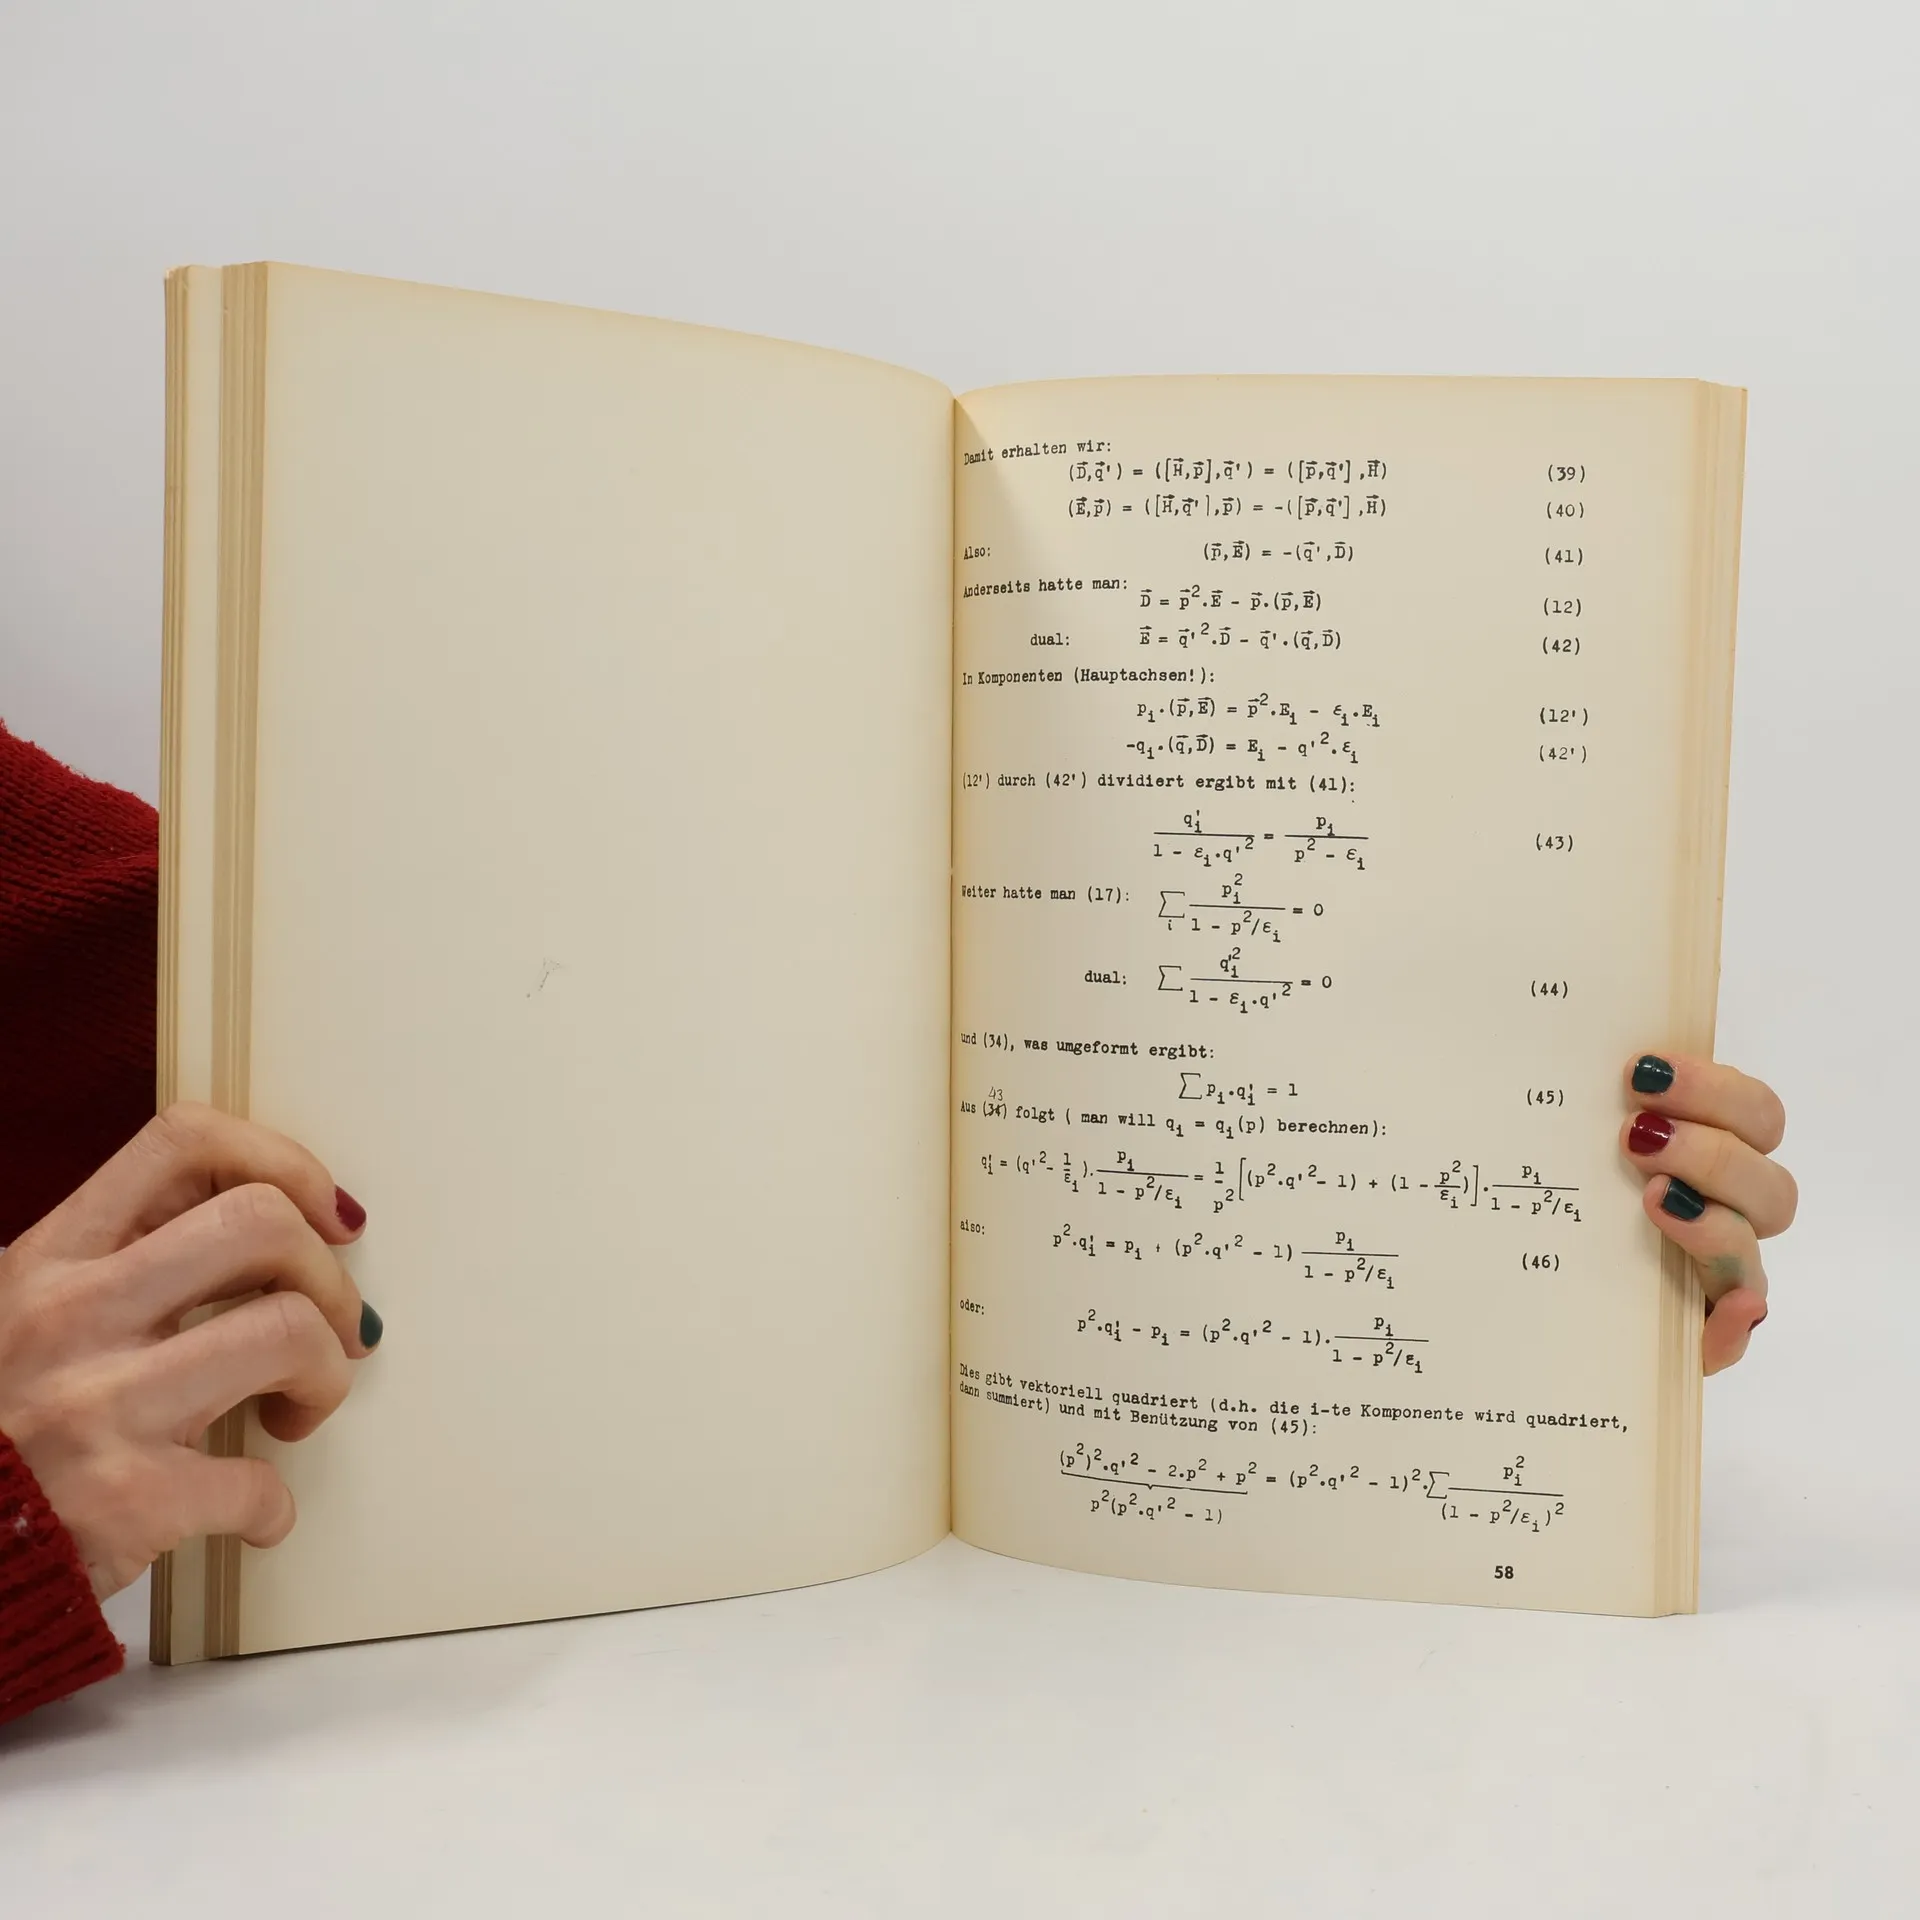 Damit erhalten wir:
(D⃗,q⃗') = ([H⃗,p⃗],q⃗') = ([p⃗,q⃗'],H⃗) (39)
(E⃗,p⃗) = ([H⃗,q⃗'],p⃗) = -([p⃗,q⃗'],H⃗) (40)
Also: (p⃗,E⃗) = -(q⃗',D⃗) (41)
Anderseits hatte man: D⃗ = p⃗².E⃗ - p⃗.(p⃗,E⃗) (12)
dual: E⃗ = q⃗'².D⃗ - q⃗'.(q⃗,D⃗) (42)
In Komponenten (Hauptachsen!):
pᵢ.(p⃗,E⃗) = p⃗².Eᵢ - εᵢ.Eᵢ (12')
-qᵢ.(q⃗,D⃗) = Eᵢ - q'².εᵢ (42')
(12') durch (42') dividiert ergibt mit (41):
qᵢ' / (1 - εᵢ.q'²) = pᵢ / (p² - εᵢ) (43)
Weiter hatte man (17): ∑ᵢ pᵢ² / (1 - p²/εᵢ) = 0
dual: ∑ qᵢ'² / (1 - εᵢ.q'²) = 0 (44)
und (34), was umgeformt ergibt:
∑ pᵢ.qᵢ' = 1 (45)
43
Aus (34) folgt ( man will qᵢ = qᵢ(p) berechnen):
qᵢ' = (q'² - 1/εᵢ).pᵢ / (1 - p²/εᵢ) = 1/p² [(p².q'² - 1) + (1 - p²/εᵢ)].pᵢ / (1 - p²/εᵢ)
also: p².qᵢ' = pᵢ + (p².q'² - 1) pᵢ / (1 - p²/εᵢ) (46)
oder: p².qᵢ' - pᵢ = (p².q'² - 1).pᵢ / (1 - p²/εᵢ)
Dies gibt vektoriell quadriert (d.h. die i-te Komponente wird quadriert,
dann summiert) und mit Benützung von (45):
(p²)².q'² - 2.p² + p² = (p².q'² - 1)².∑ pᵢ² / (1 - p²/εᵢ)²
p²(p².q'² - 1)
58